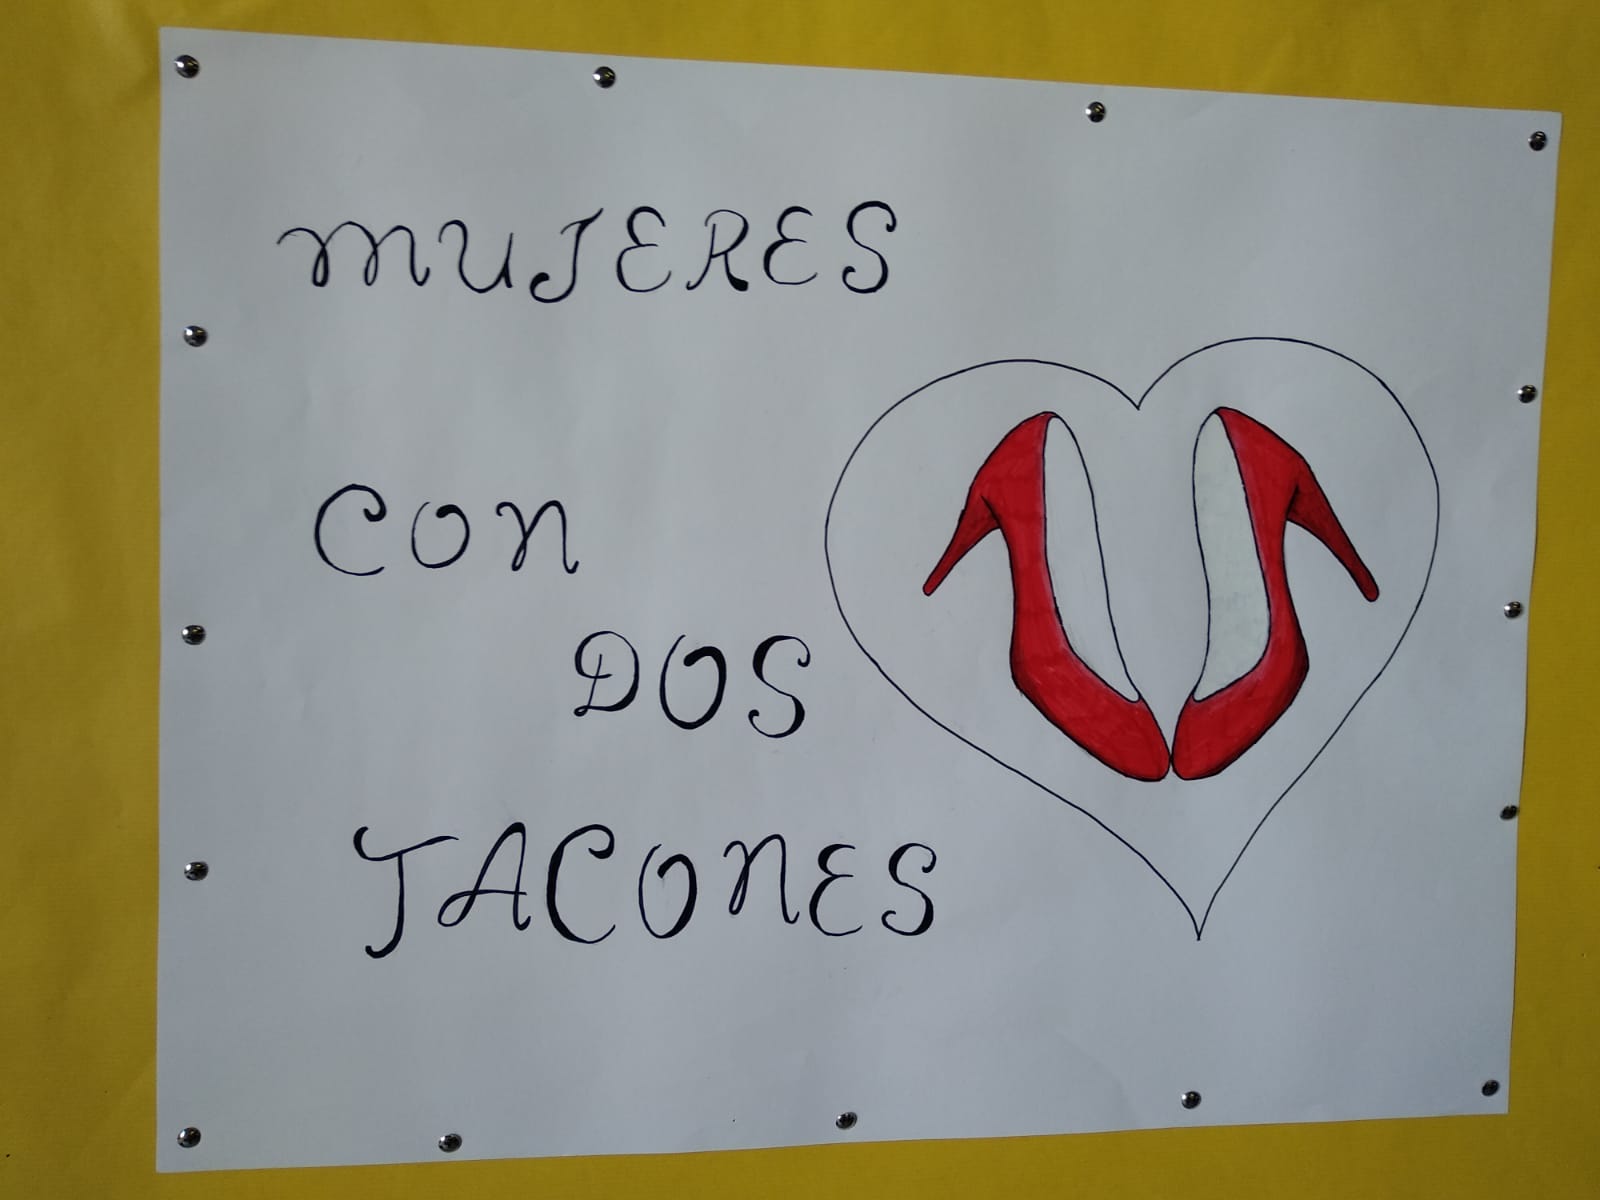 MUJERES
CON
DOS
TACONES